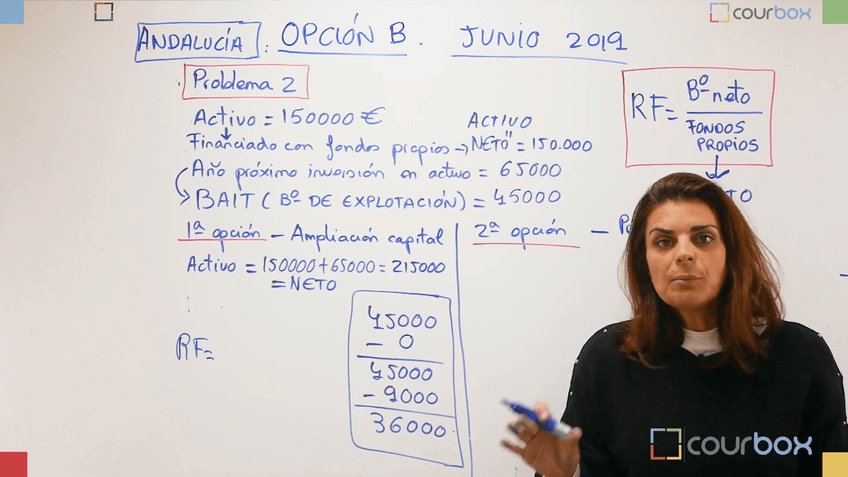 courbox
ANDALUCÍA : OPCIÓN B. JUNIO 2019
Problema 2
Activo = 150000 €
Financiado con fondos propios → ACTIVO NETO" = 150.000
Año próximo inversión en activo = 65000
BAIT (Bº DE EXPLOTACIÓN) = 45000
RF = Bº neto
FONDOS PROPIOS
1ª opción - Ampliación capital
Activo = 150000 + 65000 = 215000
= NETO
RF =
45000
- 0
45000
- 9000
36000
2ª opción -
courbox